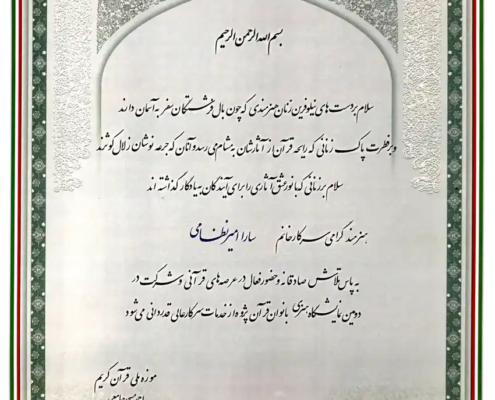 بسم الله الرحمن الرحیم
سلام بر دست های نیلوفرین زنان هنرمندی که چون بال فرشتگان سفر به آسمان دارند
و بر فطرت پاک زنانی که رایحه قرآن از آثارشان به مشام می رسد و آنان که جرعه نوشان زلال کوثرند
سلام بر زنانی که با نور عشق آثاری را برای آیندگان به یادگار گذاشته اند
هنرمند گرامی سرکار خانم سارا امیرنظامی
به پاس تلاش صادقانه و حضور فعال در عرصه های قرآنی و شرکت در
دومین نمایشگاه هنری بانوان قرآن پژوه از خدمات سرکار عالی قدردانی می شود
موزه ملی قرآن کریم